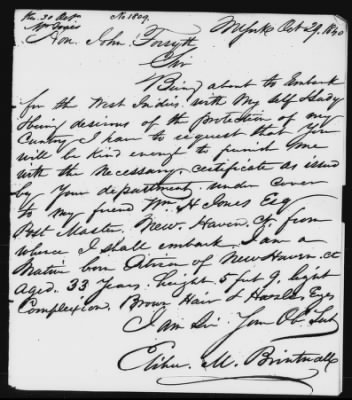 No 1809.
New York Oct 29. 1840
Hon. John Forsyth
Sir
Being about to Embark
for the West Indies with my self & Lady
Being desirous of the Protection of my
Country I have to request that you
will be kind enough to furnish me
with the necessary certificate as issued
by your department under cover
to my friend Wm H Jones Esq
Post Master. New. Haven. Ct from
where I shall embark I am a
Native born Citizen of New Haven. Ct
aged. 33 Years. height 5 feet 9. light
Complexion. Brown Hair & Hazle Eyes
I am Sir Your Ob. Sert
Elihu. M. Brintnall